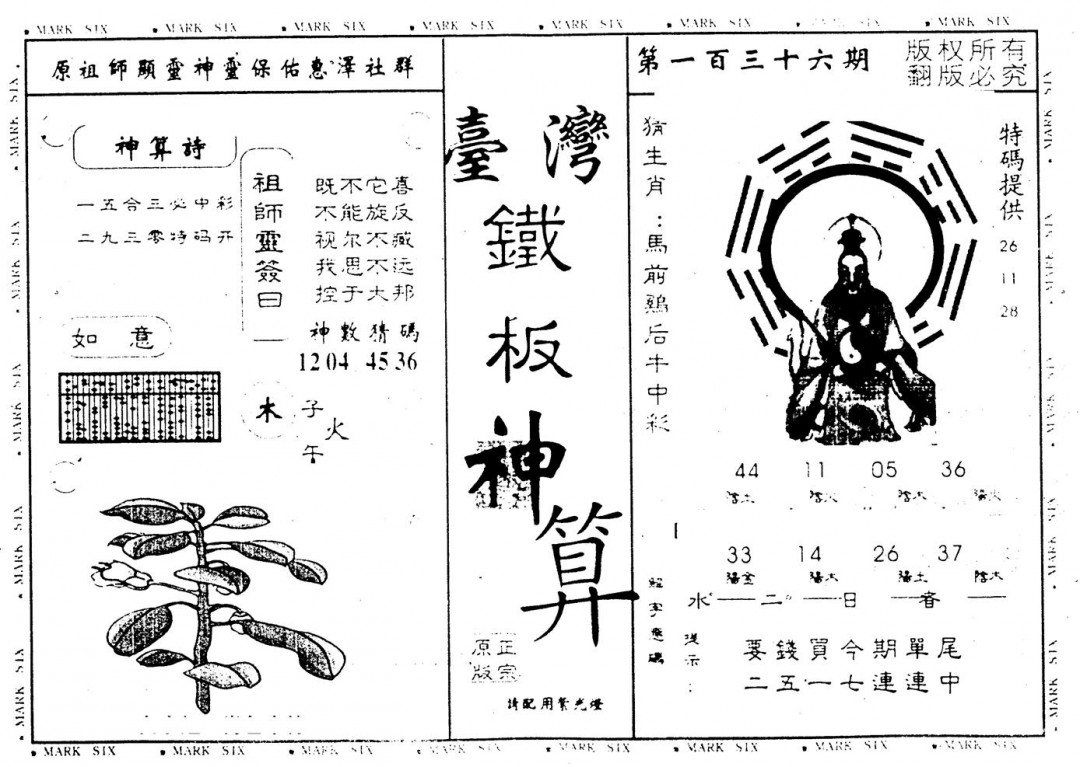 MARK SIX MARK SIX MARK SIX MARK SIX MARK SIX MARK SIX MARK SIX MARK SIX
原祖師顯靈神靈保佑惠澤社群
神算詩
一五合三必中彩
二九三零特码开
祖師靈簽曰
既不它喜
不能旋反
视尔不臧
我思不远
控于大邦
神數猜碼
12 04 45 36
如意
木
子
火
午
臺灣
鐵
板
神
算
正宗
原版
请配用紫光燈
第一百三十六期
版权所有
翻版必究
猜生肖：馬前鷄后牛中彩
特碼提供
26
11
28
44 11 05 36
陰土 陰火 陰木 陽火
33 14 26 37
陽金 陽木 陽土 陰木
水 二 日 春
提示：
要錢買今期單尾
二五一七連連中
MARK SIX MARK SIX MARK SIX MARK SIX MARK SIX MARK SIX MARK SIX MARK SIX